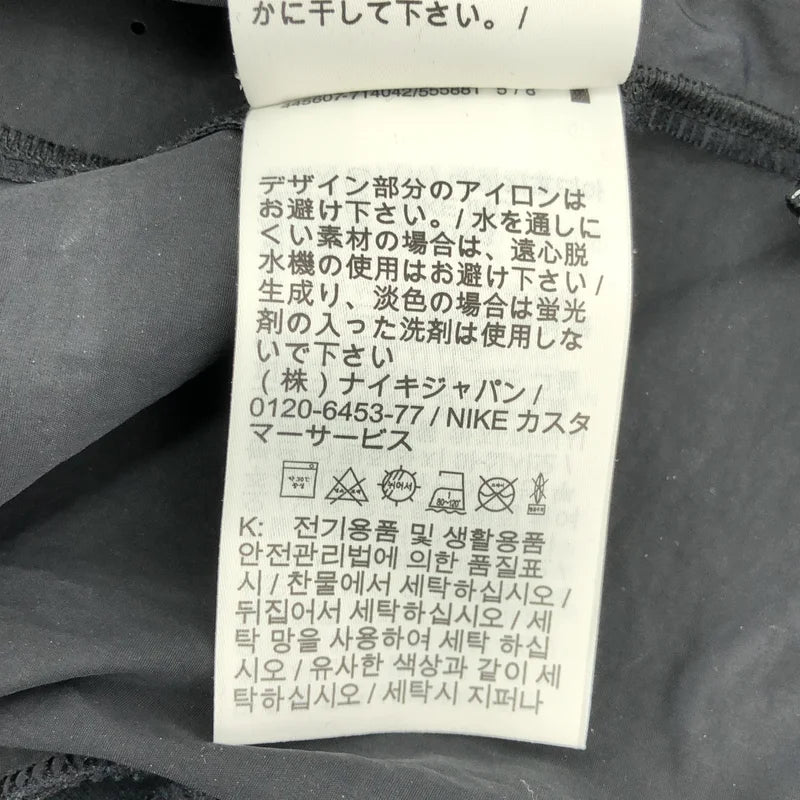 かに干して下さい。/
445607-714042/555881 5 / 8
デザイン部分のアイロンは
お避け下さい。/ 水を通しに
くい素材の場合は、遠心脱
水機の使用はお避け下さい /
生成り、淡色の場合は蛍光
剤の入った洗剤は使用しな
いで下さい
(株) ナイキジャパン /
0120-6453-77 / NIKE カスタ
マーサービス
약 30℃ 중성 뉘어서 1 80~120°
K: 전기용품 및 생활용품
안전관리법에 의한 품질표
시 / 찬물에서 세탁하십시오 /
뒤집어서 세탁하십시오 / 세
탁 망을 사용하여 세탁 하십
시오 / 유사한 색상과 같이 세
탁하십시오 / 세탁시 지퍼나